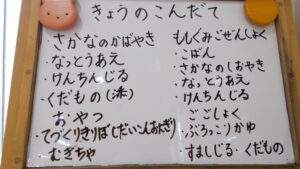 きょうのこんだて
・さかなのかばやき
・なっとうあえ
・けんちんじる
・くだもの(柒)
おやつ
・てづくりきりぼしだいこんおにぎり
むぎちゃ
ももぐみごぜんしょく
・ごはん
・さかなのしおやき
・なっとうあえ
・けんちんじる
・ごごしょく
・ぶろっこりかゆ
すましじる・くだもの